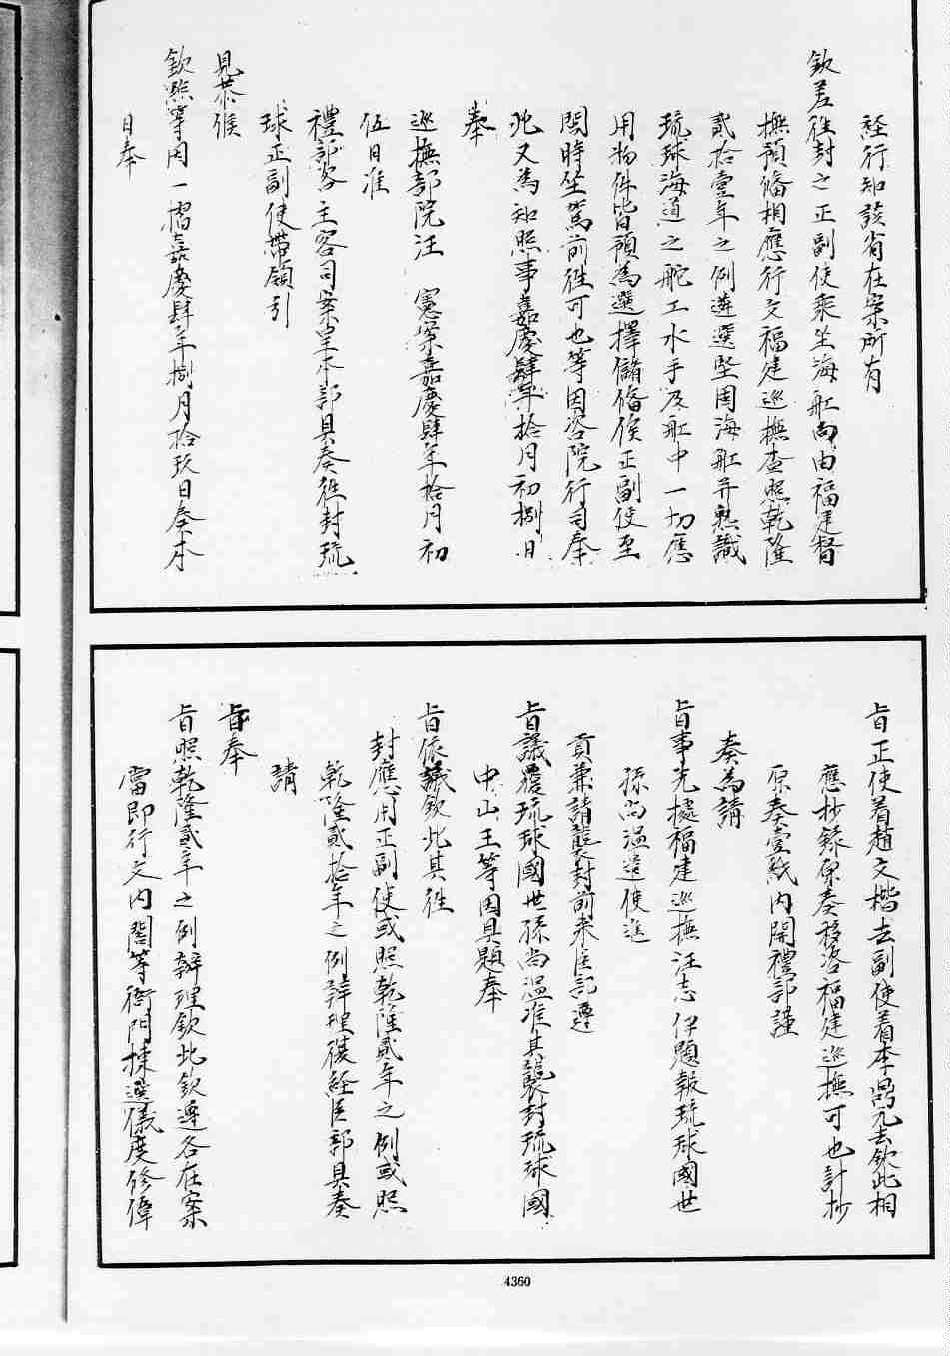 経行知該省在案所有
欽差徃封之正副使乘坐海舡向由福建督
撫預備相應行文福建巡撫查照乾隆
貳拾壹年之例遴選堅固海舡并熟識
琉球海道之舵工水手及舡中一切應
用物件皆預為選擇儲備俟正副使至
閩時坐駕前徃可也等因咨院行司奉
此又為知照事嘉慶肆年拾月初捌日
奉
巡撫部院汪 憲案嘉慶肆年拾月初
伍日准
禮部咨主客司案呈本部具奏徃封琉
球正副使帶領引
見恭候
欽點等因一摺嘉慶肆年捌月拾玖日奏本
日奉
旨正使着趙文楷去副使着李鼎元去欽此相
應抄錄原奏移咨福建巡撫可也計抄
原奏壹紙內開禮部謹
奏為請
旨事先據福建巡撫汪志伊題報琉球國世
孫尚温遣使進
貢兼請襲封前来臣部遵
旨議覆琉球國世孫尚温准其襲封琉球國
中山王等因具題奉
旨依議欽此其徃
封應用正副使或照乾隆貳年之例或照
乾隆貳拾年之例辦理復経臣部具奏
請
旨奉
旨照乾隆貳年之例辦理欽此欽遵各在案
當即行文內閣等衙門揀選儀度修偉